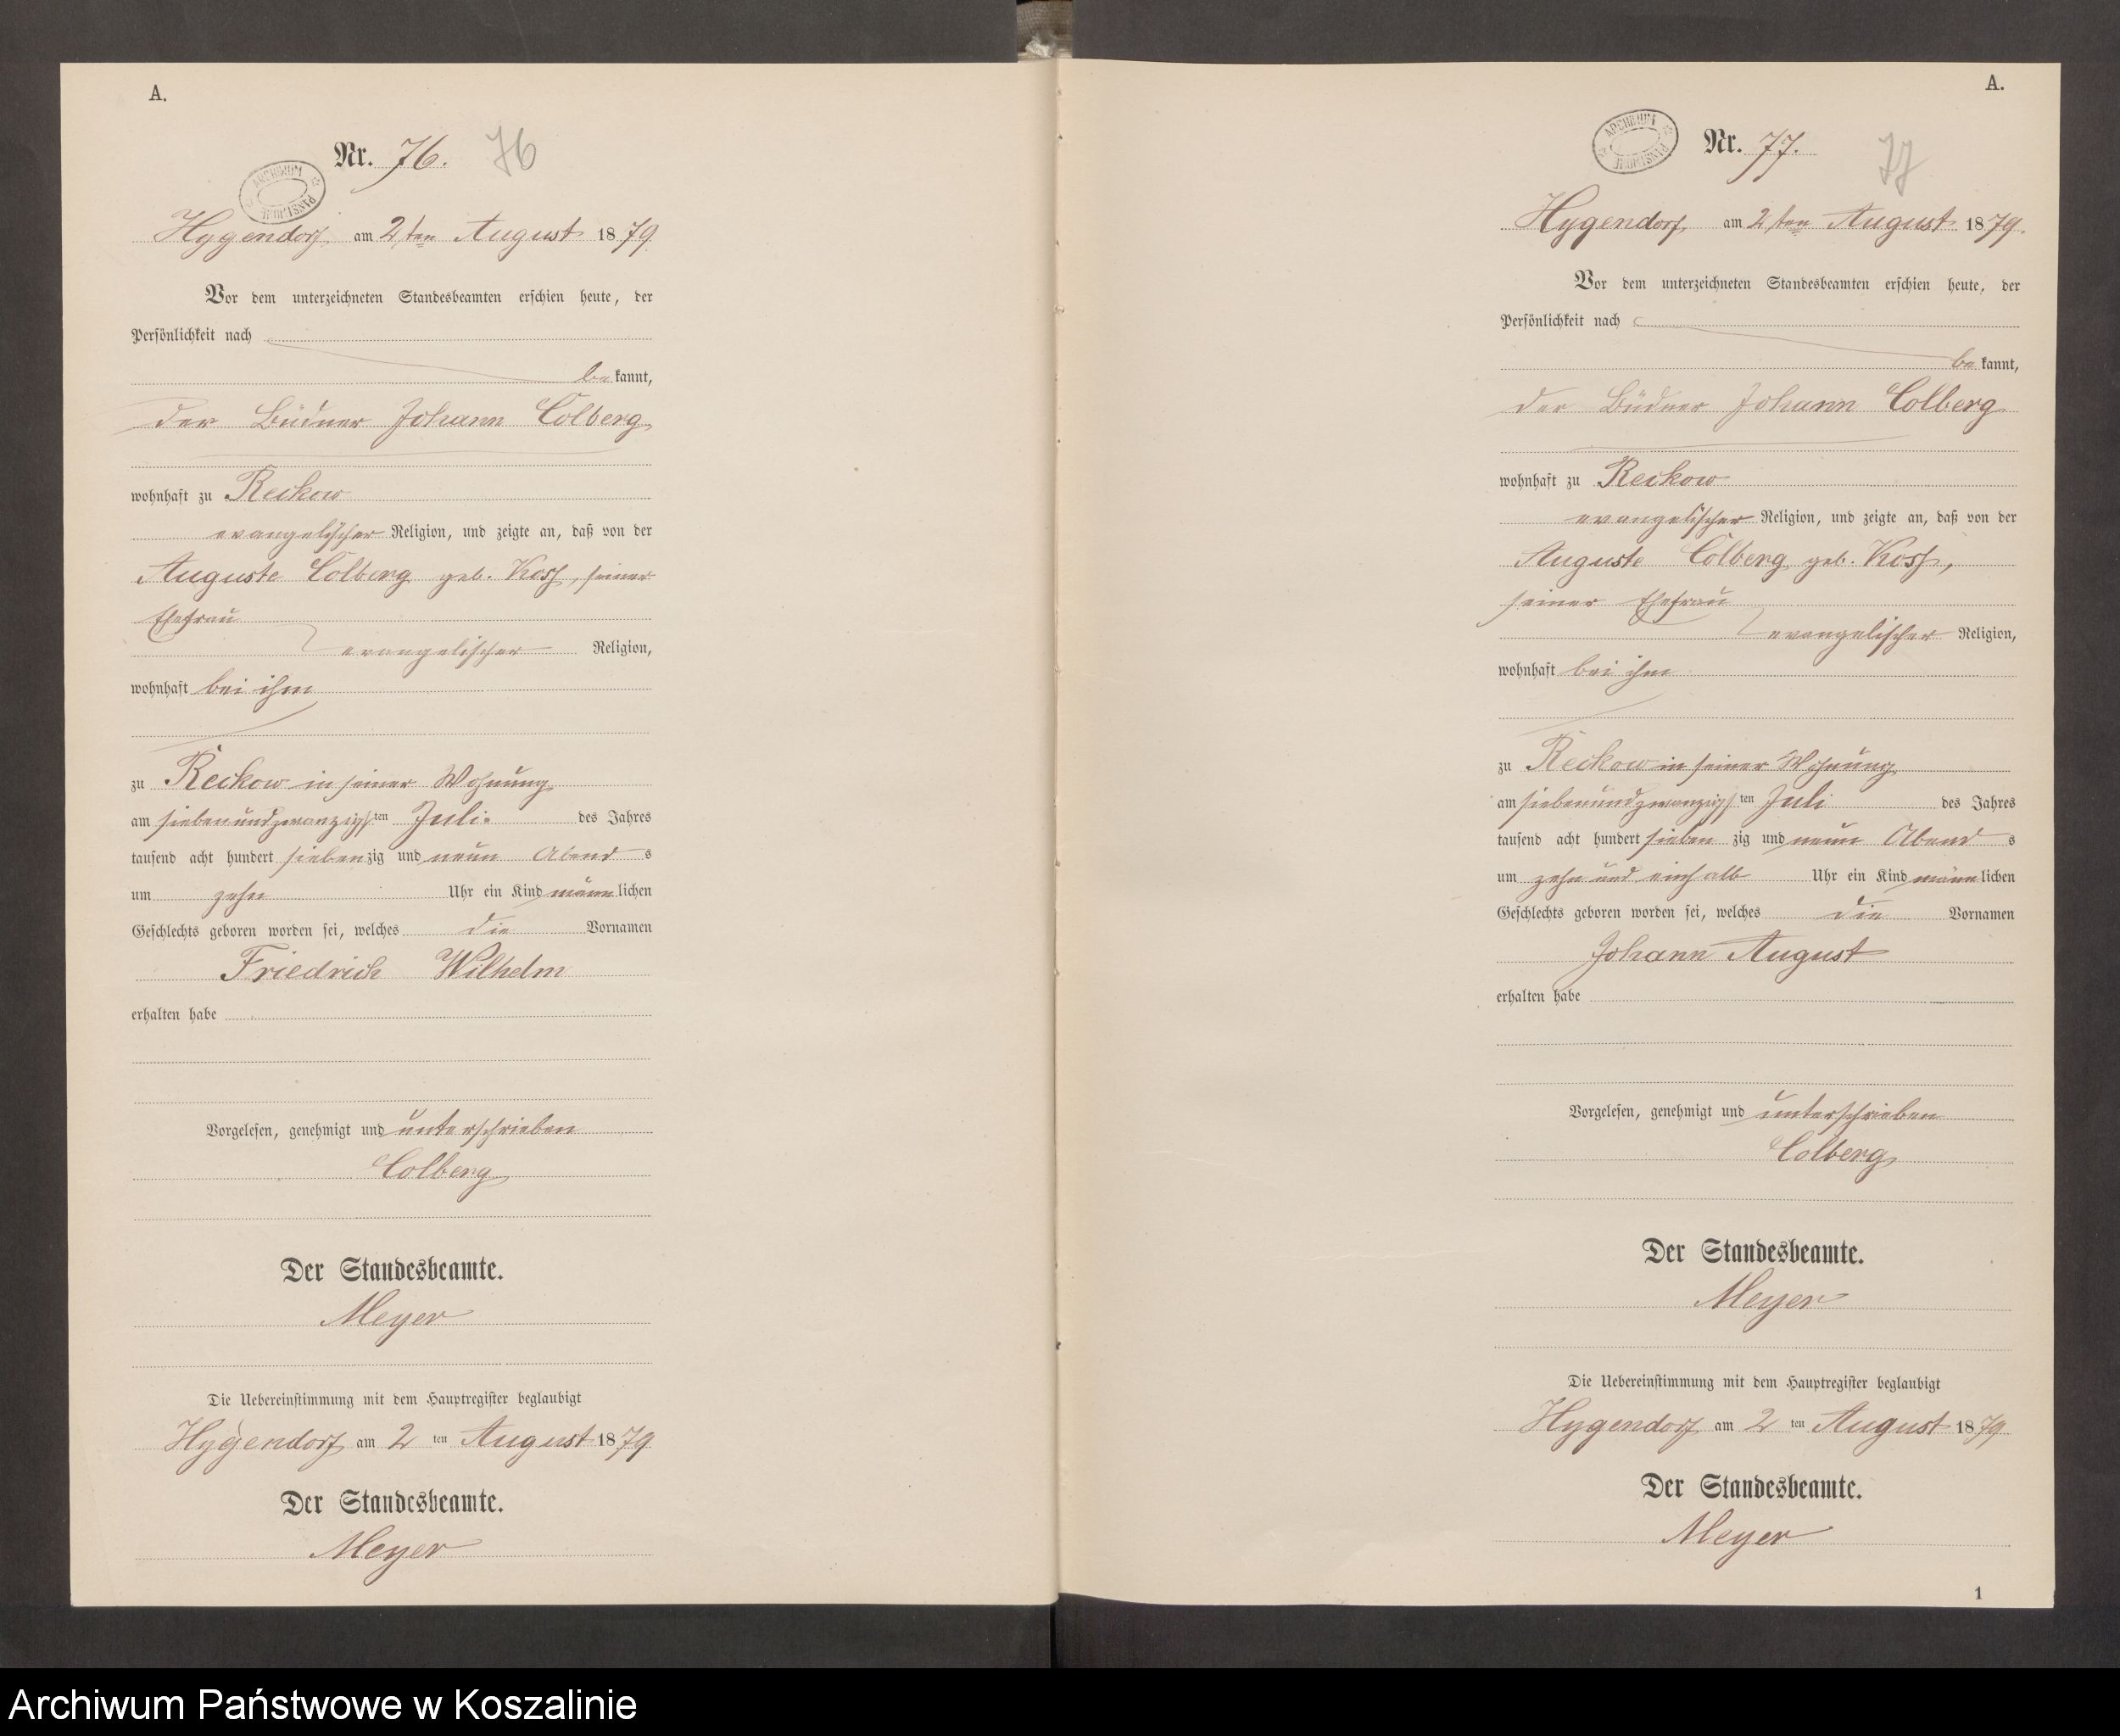 A.
Nr. 76. 76
ARCHIWUM PAŃSTWOWE
Hygendorf am 2ten August 1879
Vor dem unterzeichneten Standesbeamten erschien heute, der
Persönlichkeit nach
be kannt,
der Büdner Johann Colberg
wohnhaft zu Reckow
evangelischer Religion, und zeigte an, daß von der
Auguste Colberg geb. Koss, seiner
Ehefrau
evangelischer Religion,
wohnhaft bei ihm
zu Reckow in seiner Wohnung
am siebenundzwanzigsten Juli des Jahres
tausend acht hundert siebenzig und neun Abend s
um zehn Uhr ein Kind männlichen
Geschlechts geboren worden sei, welches die Vornamen
Friedrich Wilhelm
erhalten habe
Vorgelesen, genehmigt und unterschrieben
Colberg
Der Standesbeamte.
Meyer
Die Uebereinstimmung mit dem Hauptregister beglaubigt
Hygendorf am 2 ten August 1879
Der Standesbeamte.
Meyer
A.
ARCHIWUM PAŃSTWOWE
Nr. 77. 77
Hygendorf am 2ten August 1879.
Vor dem unterzeichneten Standesbeamten erschien heute, der
Persönlichkeit nach
be kannt,
der Büdner Johann Colberg
wohnhaft zu Reckow
evangelischer Religion, und zeigte an, daß von der
Auguste Colberg geb. Koss,
seiner Ehefrau
evangelischer Religion,
wohnhaft bei ihm
zu Reckow in seiner Wohnung
am siebenundzwanzigsten Juli des Jahres
tausend acht hundert sieben zig und neun Abend s
um zehn und einhalb Uhr ein Kind männlichen
Geschlechts geboren worden sei, welches die Vornamen
Johann August
erhalten habe
Vorgelesen, genehmigt und unterschrieben
Colberg
Der Standesbeamte.
Meyer
Die Uebereinstimmung mit dem Hauptregister beglaubigt
Hygendorf am 2 ten August 1879
Der Standesbeamte.
Meyer
1
Archiwum Państwowe w Koszalinie